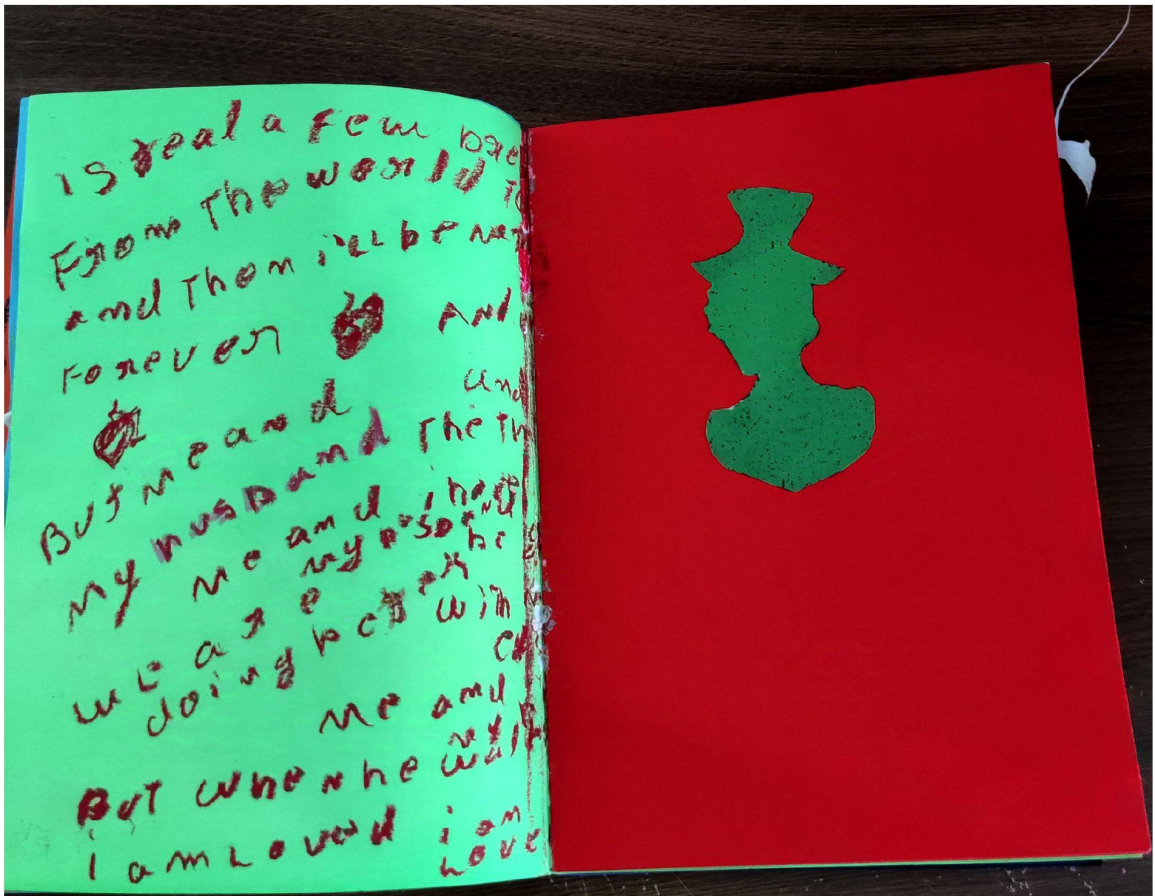 i steal a few bre
From The world
and Then ill be ne
Forever
And
But me and
my husband The Th
me and
my
we are
doing better
with
me and
my
But when he walk
i am Loved i am
Love